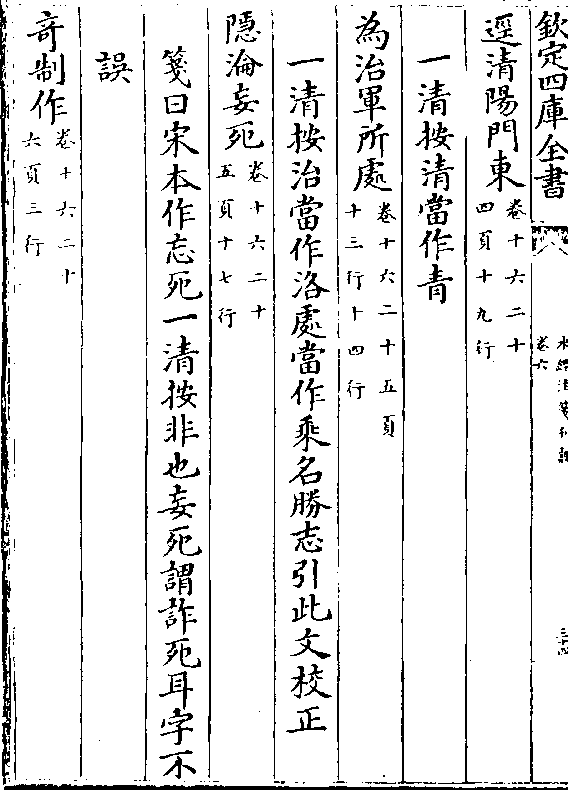 欽定四庫全書
水經注箋刊誤
卷六
逕清陽門東卷十六二十四頁十九行
一清按清當作青
為治軍所處卷十六二十五頁十三行十四行
一清按治當作洛處當作乘名勝志引此文校正
隱淪妄死卷十六二十五頁十七行
箋曰宋本作忘死一清按非也妄死謂詐死耳字不
誤
竒制作卷十六二十六頁三行